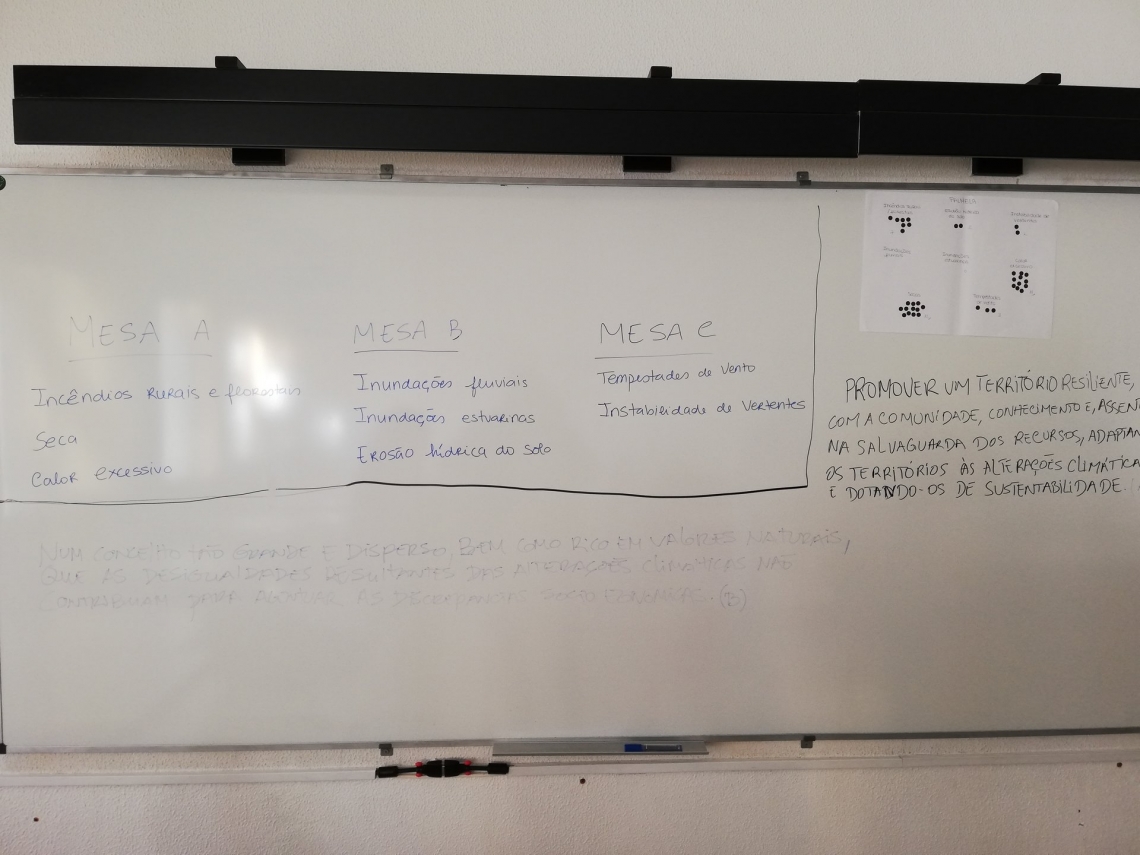 MESA A
Incêndios Rurais e florestais
Seca
Calor excessivo
MESA B
Inundações fluviais
Inundações estuarinas
Erosão hídrica do solo
MESA C
Tempestades de vento
Instabilidade de Vertentes
PROMOVER UM TERRITÓRIO RESILIENTE,
COM A COMUNIDADE, CONHECIMENTO E, ASSENT
NA SALVAGUARDA DOS RECURSOS, ADAPTAN
OS TERRITÓRIOS ÀS ALTERAÇÕES CLIMÁTICA
E DOTANDO-OS DE SUSTENTABILIDADE.
NUM TÃO GRANDE E DISPERSO, BEM COMO RICO EM VALORES NATURAIS,
QUE AS DESIGUALDADES RESULTANTES DAS ALTERAÇÕES CLIMÁTICAS NÃO
CONTRIBUAM PARA AS DISCREPÂNCIAS (B)